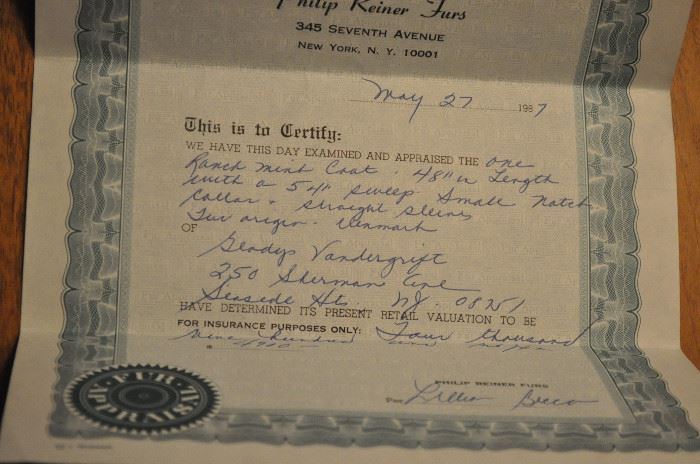 Philip Reiner Furs
345 SEVENTH AVENUE
NEW YORK, N. Y. 10001
May 27 1987
This is to Certify:
WE HAVE THIS DAY EXAMINED AND APPRAISED THE one
Ranch mink Coat. 48" in Length
with a 54" sweep Small Notch
Collar & straight sleeves
Fur origin - Denmark
OF
Gladys Vandergrift
250 Sherman Ave
Seaside Hts. NJ. 08751
HAVE DETERMINED ITS PRESENT RETAIL VALUATION TO BE
FOR INSURANCE PURPOSES ONLY: Four thousand
Nine hundred
PHILIP REINER FURS
Per Lillian
FUR APPRAISAL